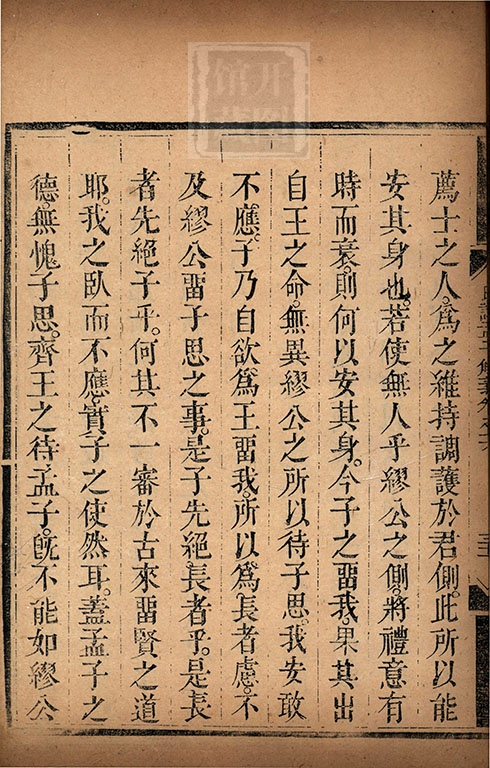 薦士之人。爲之維持調護於君側。此所以能
安其身也。若使無人乎繆公之側。將禮意有
時而衰。則何以安其身。今子之畱我。果其出
自王之命。無異繆公之所以待子思。我安敢
不應。子乃自欲爲王畱我。所以爲長者慮。不
及繆公畱子思之事。是子先絕長者乎。是長
者先絕子乎。何其不一審於古來畱賢之道
耶。我之臥而不應。實子之使然耳。蓋孟子之
德。無愧子思。齊王之待孟子。旣不能如繆公